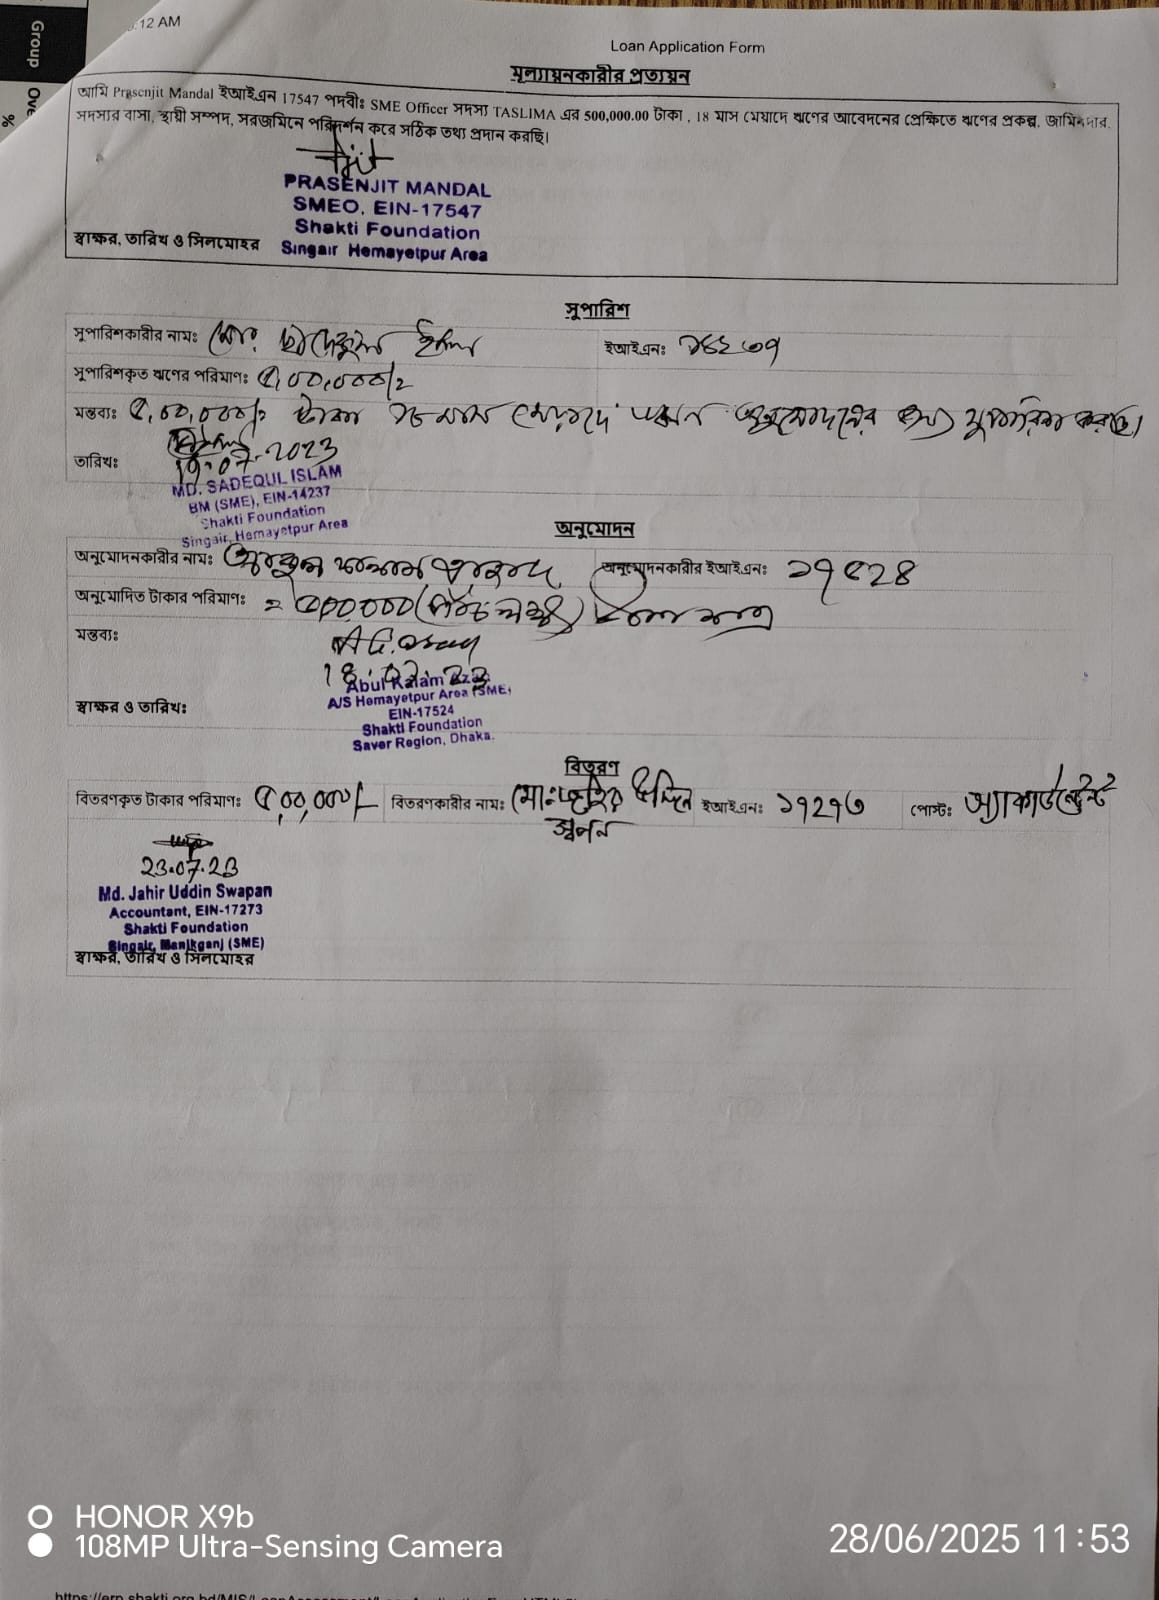 :12 AM
Group
Ove
Loan Application Form
মূল্যায়নকারীর প্রত্যয়ন
আমি Prasenjit Mandal ইআইএন 17547 পদবীঃ SME Officer সদস্য TASLIMA এর 500,000.00 টাকা , 18 মাস মেয়াদে ঋণের আবেদনের প্রেক্ষিতে ঋণের প্রকল্প, জামিনদার,
সদস্যর বাসা, স্থায়ী সম্পদ, সরজমিনে পরিদর্শন করে সঠিক তথ্য প্রদান করছি।
PRASENJIT MANDAL
SMEO, EIN-17547
Shakti Foundation
Singair Hemayetpur Area
স্বাক্ষর, তারিখ ও সিলমোহর
সুপারিশ
সুপারিশকারীর নামঃ মোঃ ছাদেকুল ইসলাম ইআইএনঃ ১৪২৩৭
সুপারিশকৃত ঋণের পরিমাণঃ ৫,০০,০০০/=
মন্তব্যঃ ৫,০০,০০০/= টাকা ১৮ মাস মেয়াদে অনুমোদনের জন্য সুপারিশ করছি।
19.07.2023
তারিখঃ
MD. SADEQUL ISLAM
BM (SME), EIN-14237
Shakti Foundation
Singair, Hemayetpur Area
অনুমোদন
অনুমোদনকারীর নামঃ আবুল কালাম আজাদ অনুমোদনকারীর ইআইএনঃ ১৭৫২৪
অনুমোদিত টাকার পরিমাণঃ = ৫০০,০০০ (পাঁচ লক্ষ) টাকা মাত্র
মন্তব্যঃ
18.07.23
Abul Kalam Azad
A/S Hemayetpur Area (SME)
EIN-17524
Shakti Foundation
Saver Region, Dhaka.
স্বাক্ষর ও তারিখঃ
বিতরণ
বিতরণকৃত টাকার পরিমাণঃ ৫,০০,০০০/- বিতরণকারীর নামঃ মোঃ জহির উদ্দিন ইআইএনঃ ১৭২৭৩ পোস্টঃ অ্যাকাউন্টেন্ট
স্বপন
23.07.23
Md. Jahir Uddin Swapan
Accountant, EIN-17273
Shakti Foundation
Singair, Manikganj (SME)
স্বাক্ষর, তারিখ ও সিলমোহর
HONOR X9b
108MP Ultra-Sensing Camera
28/06/2025 11:53